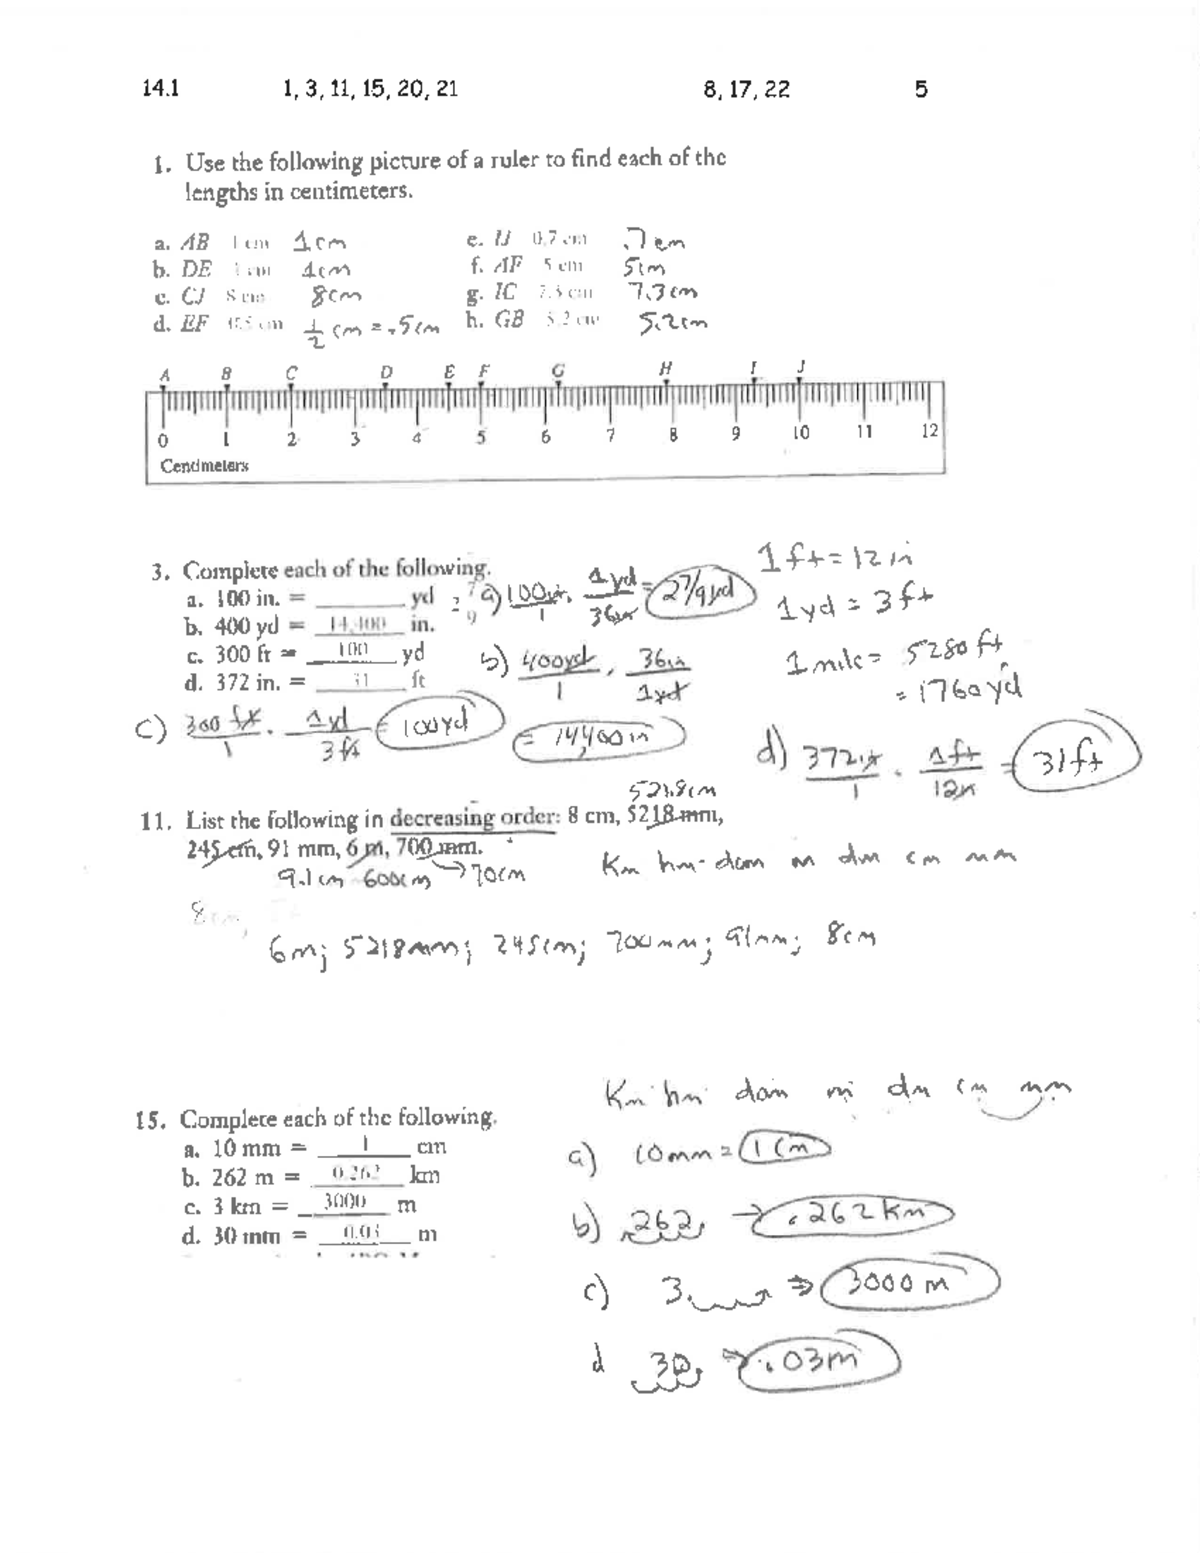 14.1 1, 3, 11, 15, 20, 21 8, 17, 22 5
1. Use the following picture of a ruler to find each of the
lengths in centimeters.
a. AB 1 cm 1cm e. IJ 0.7 cm .7cm
b. DE 1 cm 1cm f. AF 5 cm 5cm
c. CJ 8 cm 8cm g. IC 7.3 cm 7.3cm
d. EF 0.5 cm 1/2 cm = .5cm h. GB 5.2 cm 5.2cm
A B C D E F G H I J
0 1 2 3 4 5 6 7 8 9 10 11 12
Centimeters
1 ft = 12 in
3. Complete each of the following.
a. 100 in. = ______ yd 2 7/9 a) 100in/1 . 1yd/36in = 2 7/9 yd
1yd = 3ft
b. 400 yd = 14,400 in.
c. 300 ft = 100 yd b) 400yd/1 . 36in/1yd
1mile = 5280 ft
d. 372 in. = 31 ft
= 1760yd
c) 300 ft/1 . 1yd/3ft = 100yd
= 14,400in
d) 372in/1 . 1ft/12in = 31ft
521.8cm
11. List the following in decreasing order: 8 cm, 5218 mm,
245 cm, 91 mm, 6 m, 700 mm.
Km hm dam m dm cm mm
9.1cm 600cm →70cm
8cm,
6m; 5218mm; 245cm; 700mm; 91mm; 8cm
Km hm dam m dm cm mm
15. Complete each of the following.
a. 10 mm = 1 cm
a) 10mm = 1cm
b. 262 m = 0.262 km
c. 3 km = 3000 m
b) .262. → .262Km
d. 30 mm = 0.03 m
c) 3. ⇒ 3000 m
d 30. → .03m